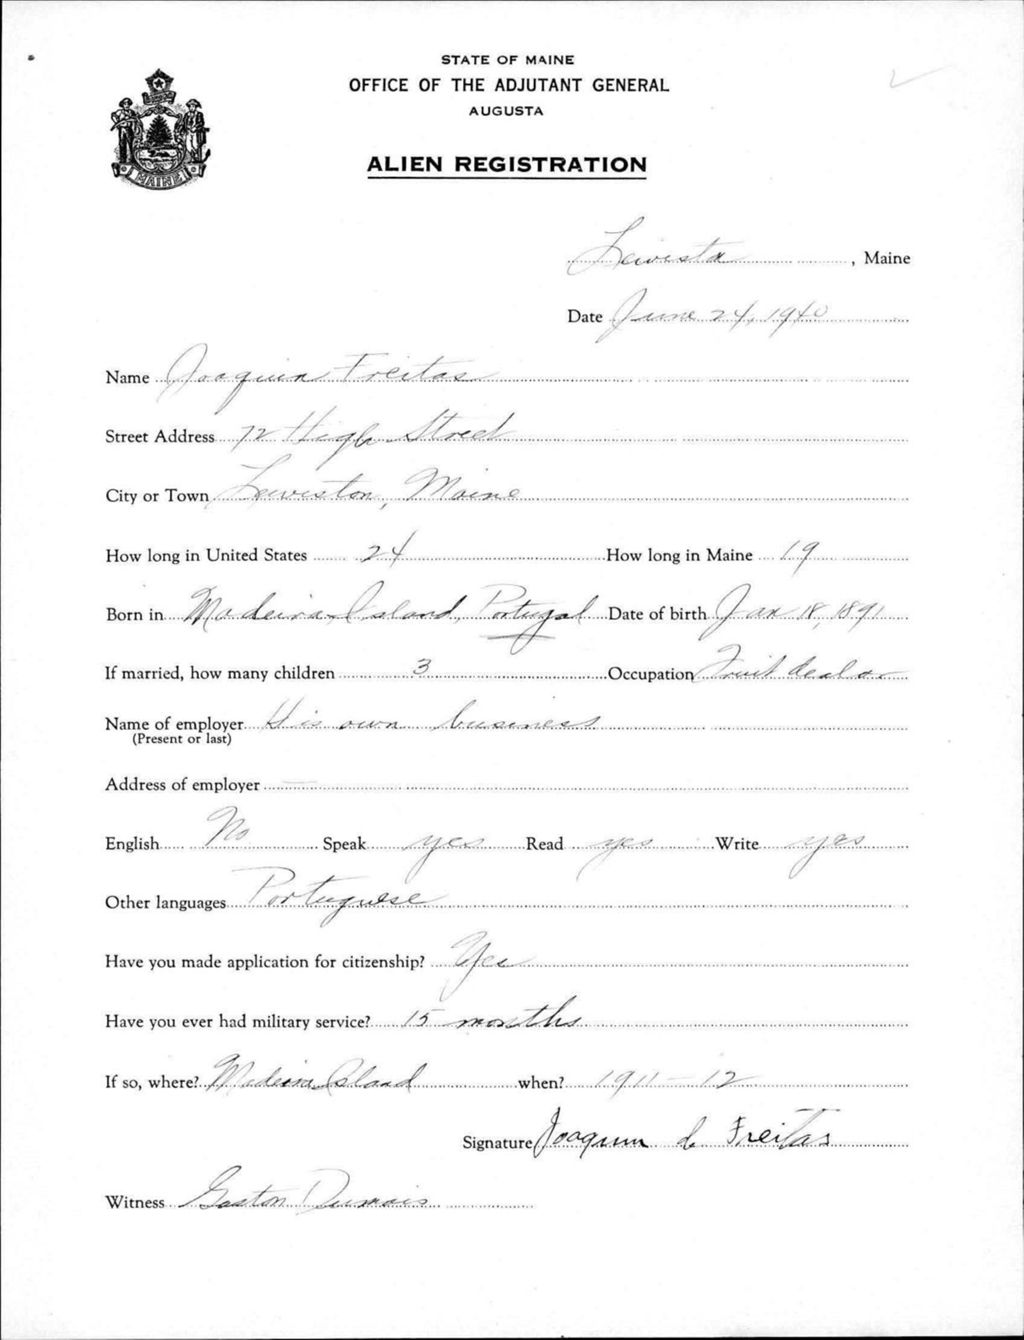 STATE OF MAINE
OFFICE OF THE ADJUTANT GENERAL
AUGUSTA
MAINE
ALIEN REGISTRATION
Lewiston, Maine
Date June 24, 1940
Name Joaquin Freitas
Street Address 72 High Street
City or Town Lewiston, Maine
How long in United States 24 How long in Maine 19
Born in Madeira Island, Portugal Date of birth Jan 18, 1891
If married, how many children 3 Occupation Fruit dealer
Name of employer His own business
(Present or last)
Address of employer —
English No Speak yes Read yes Write yes
Other languages Portuguese
Have you made application for citizenship? Yes
Have you ever had military service? 15 months
If so, where? Madeira Island when? 1911-12
Signature Joaquim d. Freitas
Witness Gaston Dumais